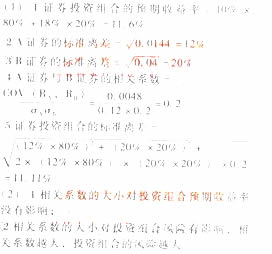 (1) 1证券投资组合的预期收益率=10%×
80%+18%×20%=11.6%
2 A证券的标准离差=√0.0144=12%
3 B证券的标准离差=√0.04=20%
4 A证券与B证券的相关系数=
COV(R₁,R₂)/σ₁σ₂=0.0048/0.12×0.2=0.2
5 证券投资组合的标准离差=
√(12%×80%)²+(20%×20%)²+
√2×(12%×80%)×(20%×20%)×0.2
=11.11%
(2) 1 相关系数的大小对投资组合预期收益率
没有影响;
2 相关系数的大小对投资组合风险有影响,相
关系数越大,投资组合的风险越大